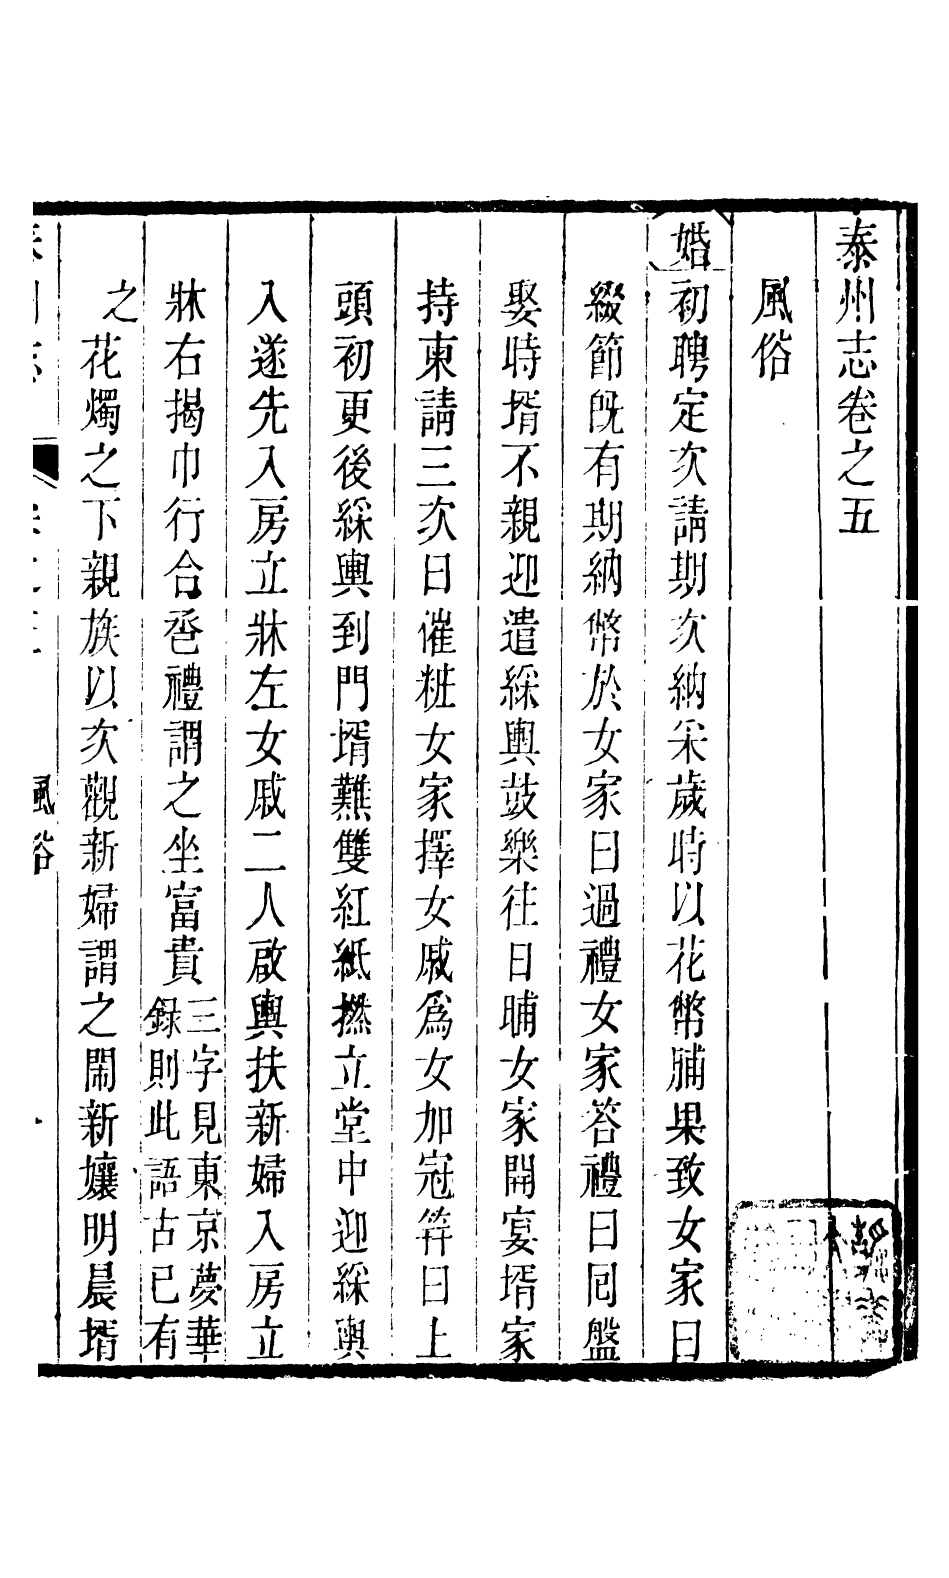 泰州志卷之五
風俗
婚初聘定次請期次納采歲時以花幣脯果致女家曰
綴節旣有期納幣於女家曰過禮女家答禮曰囘盤
娶時壻不親迎遣綵輿鼓樂往日晡女家開宴壻家
持柬請三次曰催粧女家擇女戚爲女加冠笄曰上
頭初更後綵輿到門壻蓺雙紅紙撚立堂中迎綵輿
入遂先入房立牀左女戚二人啟輿扶新婦入房立
牀右揭巾行合卺禮謂之坐富貴三字見東京夢華
錄則此語古已有
之花燭之下親族以次觀新婦謂之鬧新孃明晨壻
風俗